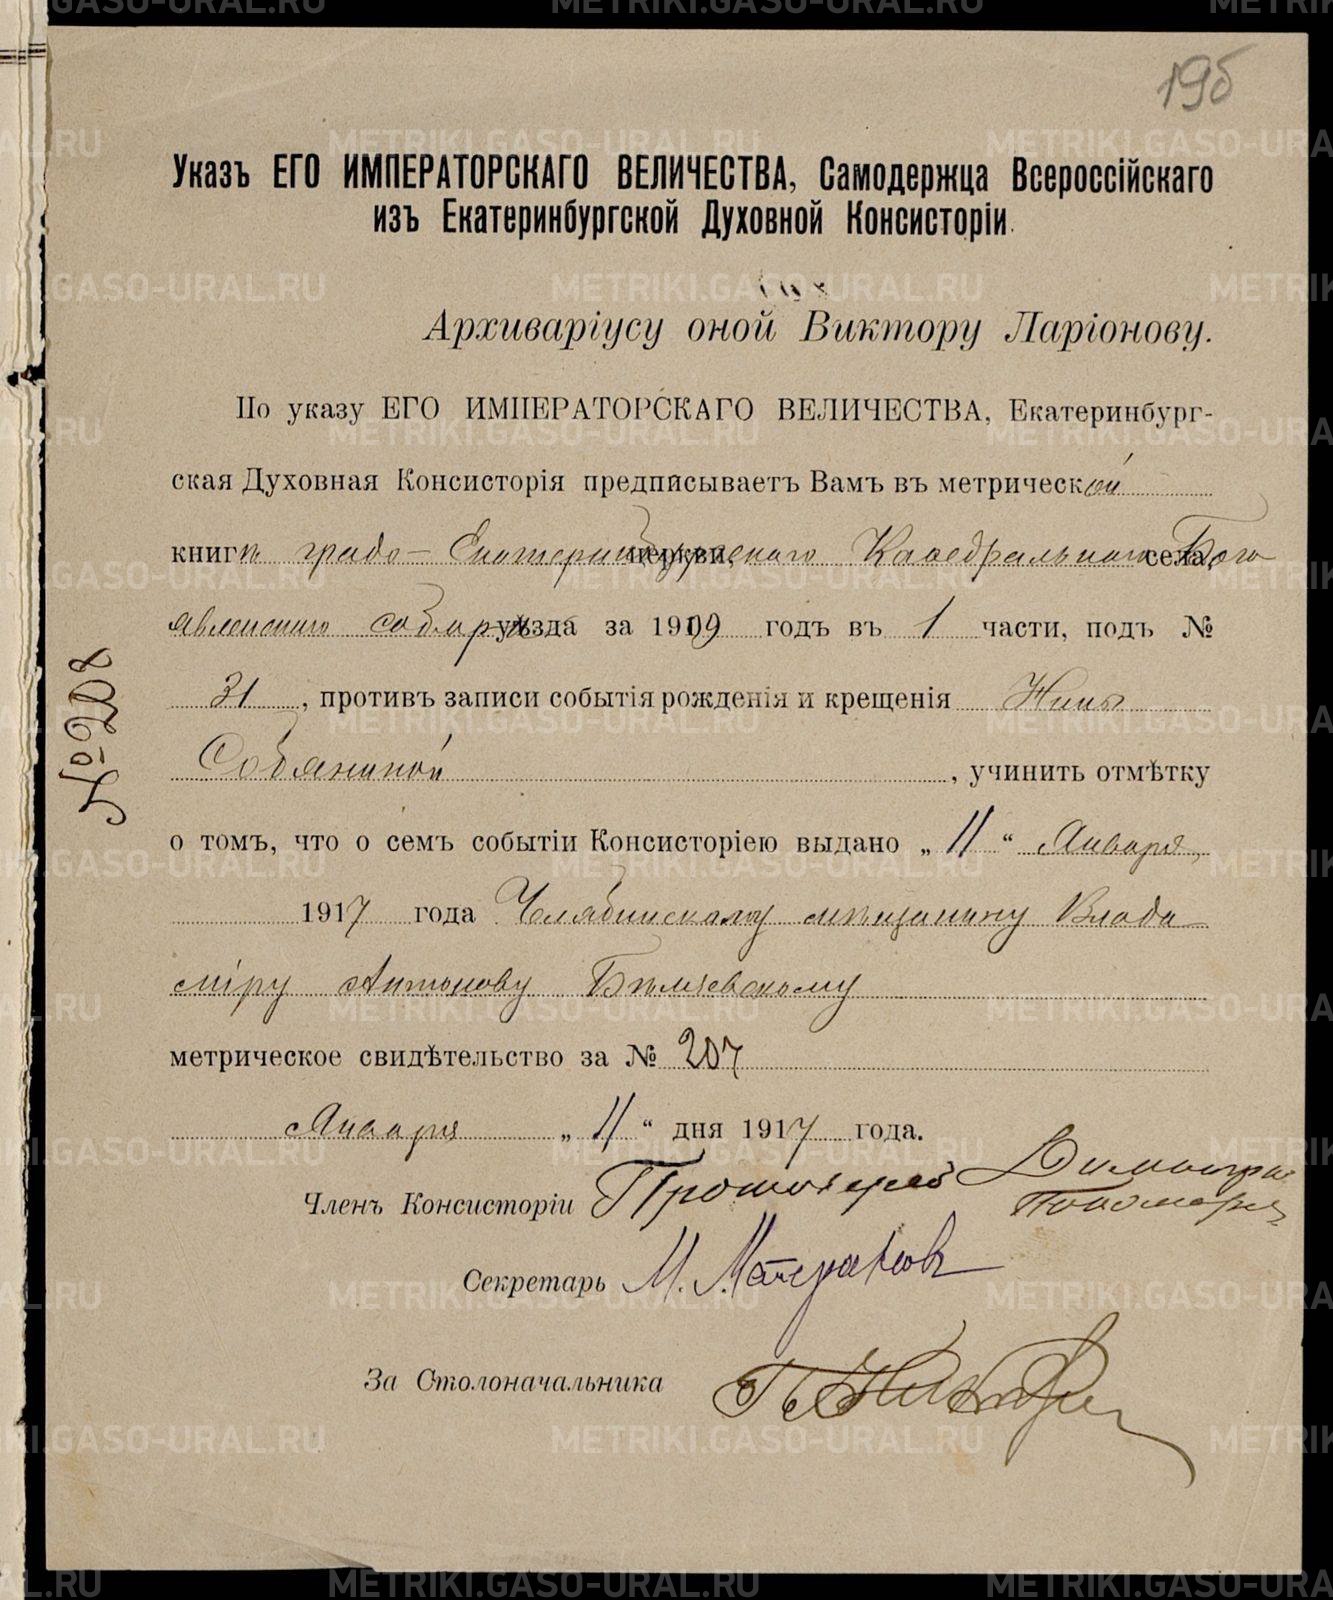 195
Указъ ЕГО ИМПЕРАТОРСКАГО ВЕЛИЧЕСТВА, Самодержца Всероссійскаго
изъ Екатеринбургской Духовной Консисторіи.
Архиваріусу оной Виктору Ларіонову.
По указу ЕГО ИМПЕРАТОРСКАГО ВЕЛИЧЕСТВА, Екатеринбург-
ская Духовная Консисторія предписываетъ Вамъ въ метрической
книгѣ градо-Екатеринбургскаго церкви, Кафедральнаго села, Бого
явленскаго собора уѣзда за 1909 годъ въ 1 части, подъ №
31, противъ записи событія рожденія и крещенія Нины
Собяниной, учинить отмѣтку
о томъ, что о семъ событіи Консисторіею выдано „11“ Января
1917 года Челябинскому мѣщанину Влади
міру Антонову Бѣляевскому
метрическое свидѣтельство за № 207
Января „11“ дня 1917 года.
Членъ Консисторіи Протоіерей Димитрій
Секретарь М.
За Столоначальника
№ 208
METRIKI.GASO-URAL.RU